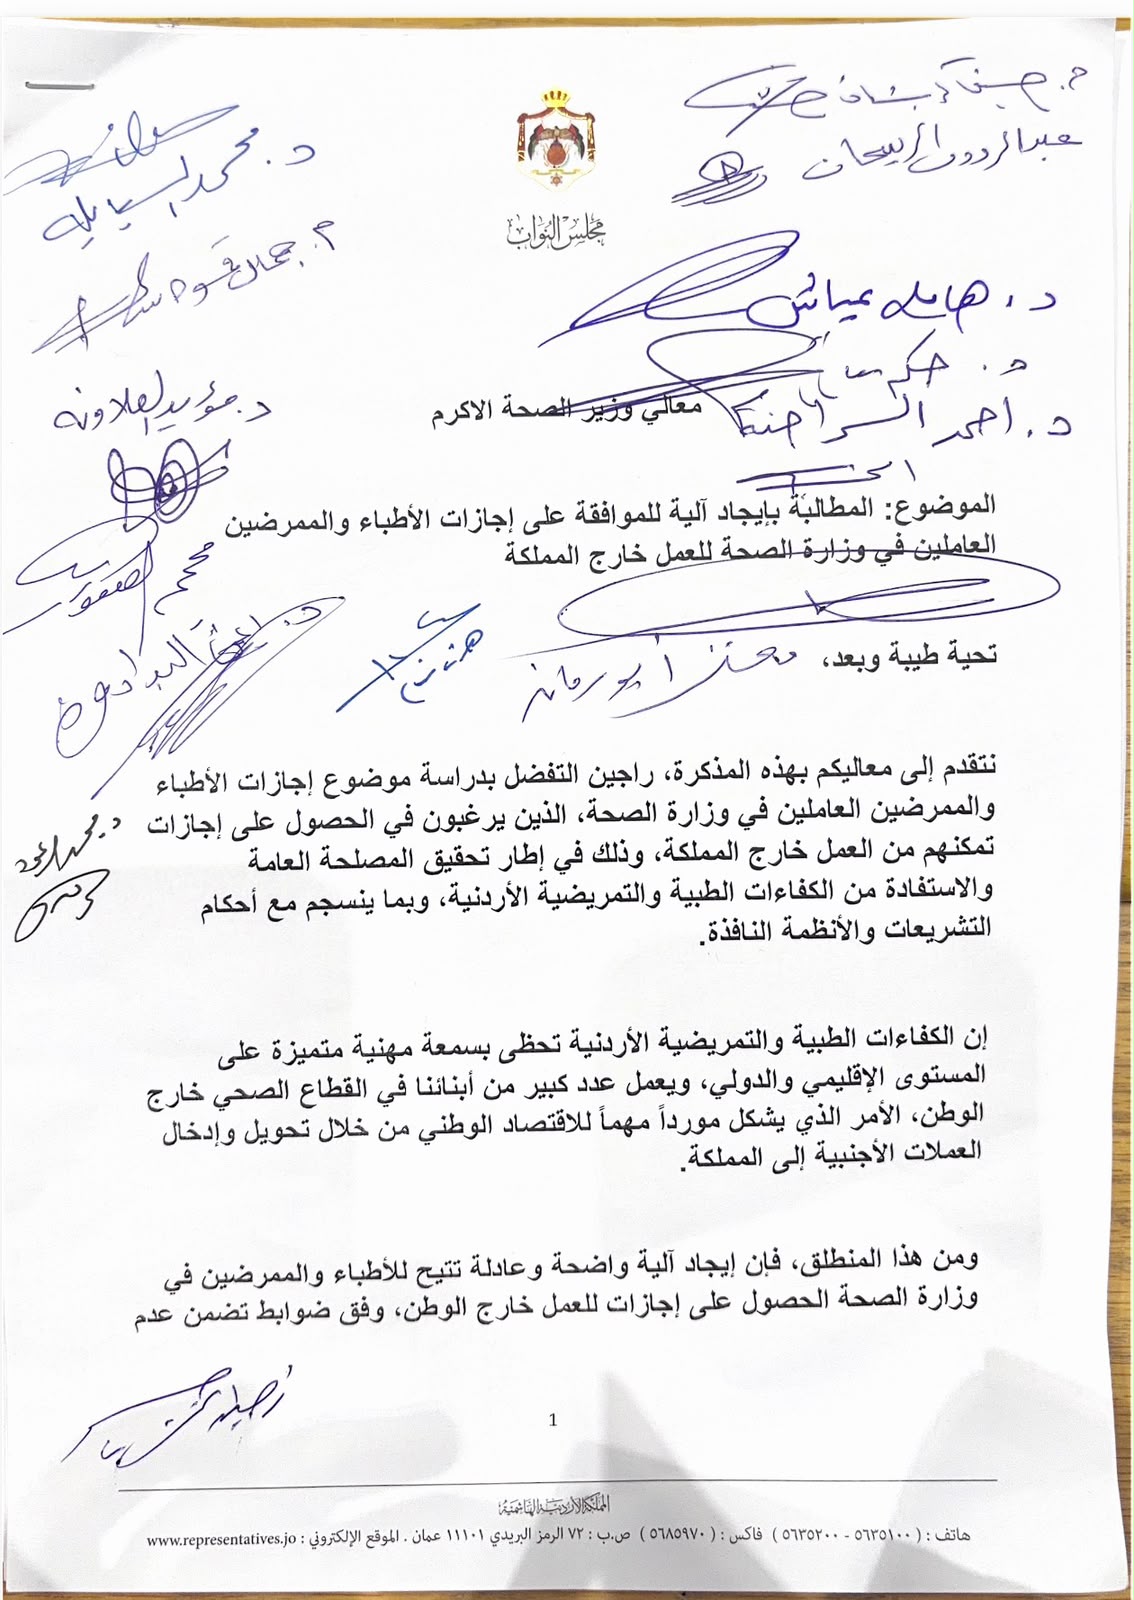 مجلس النواب
عبدالرؤوف الربيحات
د. محمد السبايلة
م. جمال قموه
د. حكم
د. مؤيد العلاونه
د. احمد السراحنة
معالي وزير الصحة الاكرم
الموضوع: المطالبة بإيجاد آلية للموافقة على إجازات الأطباء والممرضين
العاملين في وزارة الصحة للعمل خارج المملكة
محمد
تحية طيبة وبعد،
معتز أبو رمان
نتقدم إلى معاليكم بهذه المذكرة، راجين التفضل بدراسة موضوع إجازات الأطباء
والممرضين العاملين في وزارة الصحة، الذين يرغبون في الحصول على إجازات
تمكنهم من العمل خارج المملكة، وذلك في إطار تحقيق المصلحة العامة
والاستفادة من الكفاءات الطبية والتمريضية الأردنية، وبما ينسجم مع أحكام
التشريعات والأنظمة النافذة.
إن الكفاءات الطبية والتمريضية الأردنية تحظى بسمعة مهنية متميزة على
المستوى الإقليمي والدولي، ويعمل عدد كبير من أبنائنا في القطاع الصحي خارج
الوطن، الأمر الذي يشكل مورداً مهماً للاقتصاد الوطني من خلال تحويل وإدخال
العملات الأجنبية إلى المملكة.
ومن هذا المنطلق، فإن إيجاد آلية واضحة وعادلة تتيح للأطباء والممرضين في
وزارة الصحة الحصول على إجازات للعمل خارج الوطن، وفق ضوابط تضمن عدم
1
المملكة الأردنية الهاشمية
هاتف : ( ٥٦٣٥١٠٠ - ٥٦٣٥٢٠٠ ) فاكس : ( ٥٦٨٥٩٧٠ ) ص.ب : ٧٢ الرمز البريدي ١١١٠١ عمان . الموقع الإلكتروني : www.representatives.jo